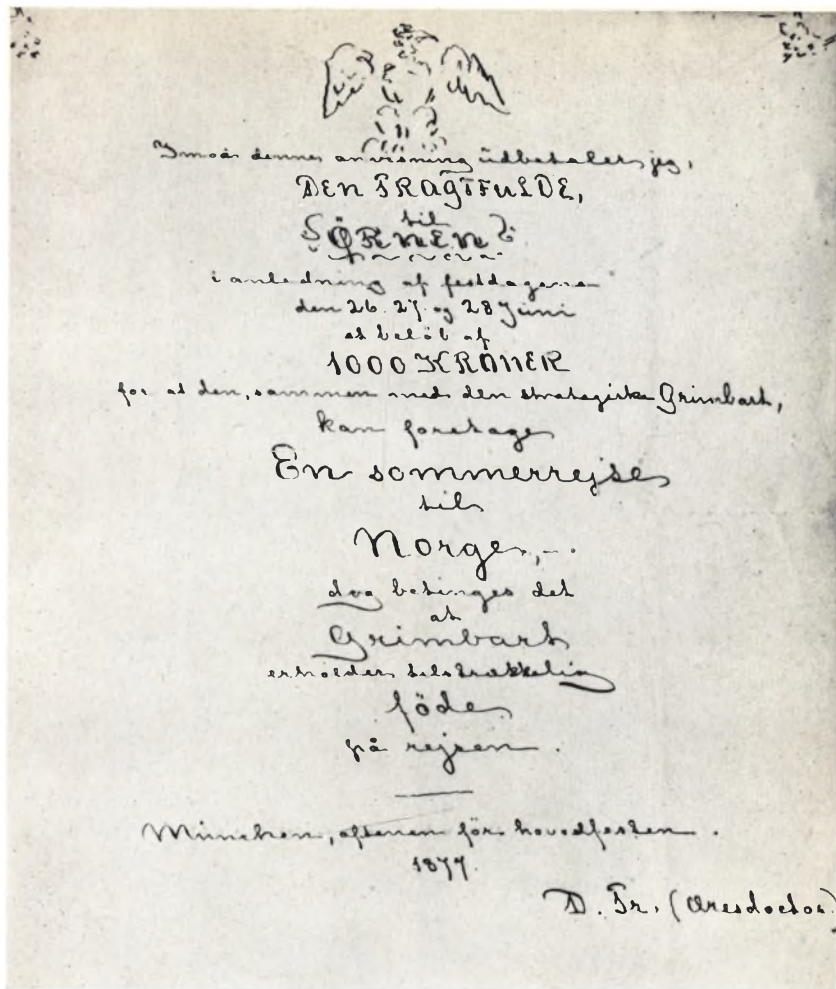 Imod denne anvisning udbetaler jeg,
DEN PRAGTFULDE,
til
ØRNEN
i anledning af festdagene
den 26. 27. og 28 Juni
et beløb af
1000 KRONER
for at den, sammen med den strategiske Grimbart,
kan foretage
En sommerrejse
til
Norge,-.
dog betinges det
at
Grimbart
erholder tilstrækkelig
föde
på rejsen.
München, aftenen för hovedfesten.
1877.
D. Pr. (Æresdoctor.)